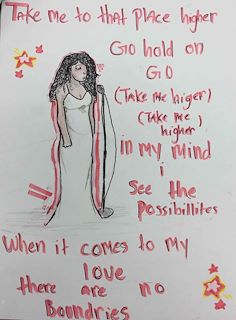 Take me to that place higher
Go hold on
GO
(Take me higer)
(Take me, higher)
in my mind
i
See the
Possibillites
When it comes to my
love
there are no
Boundries